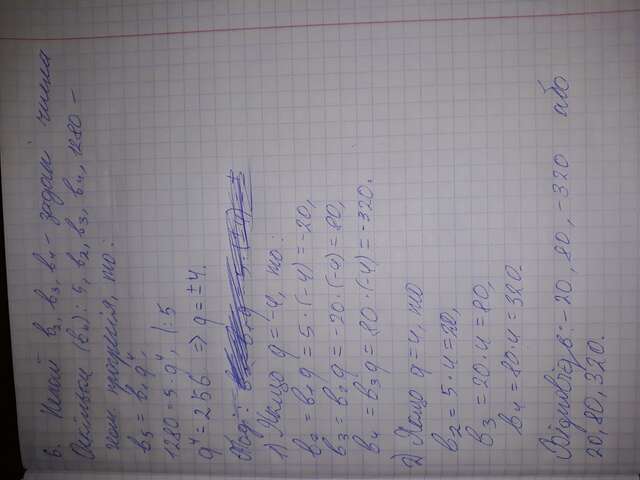 6. Нехай b₂, b₃, b₄ - задані числа
Оскільки (bₙ): 5, b₂, b₃, b₄, 1280 -
геом прогресія, то:
b₅ = b₁q⁴,
1280 = 5·q⁴, |:5
q⁴ = 256 => q = ±4.
1) Якщо q = -4, то:
b₂ = b₁q = 5·(-4) = -20,
b₃ = b₂q = -20·(-4) = 80,
b₄ = b₃q = 80·(-4) = -320.
2) Якщо q = 4, то
b₂ = 5·4 = 20,
b₃ = 20·4 = 80,
b₄ = 80·4 = 320.
Відповідь: -20, 80, -320 або
20, 80, 320.